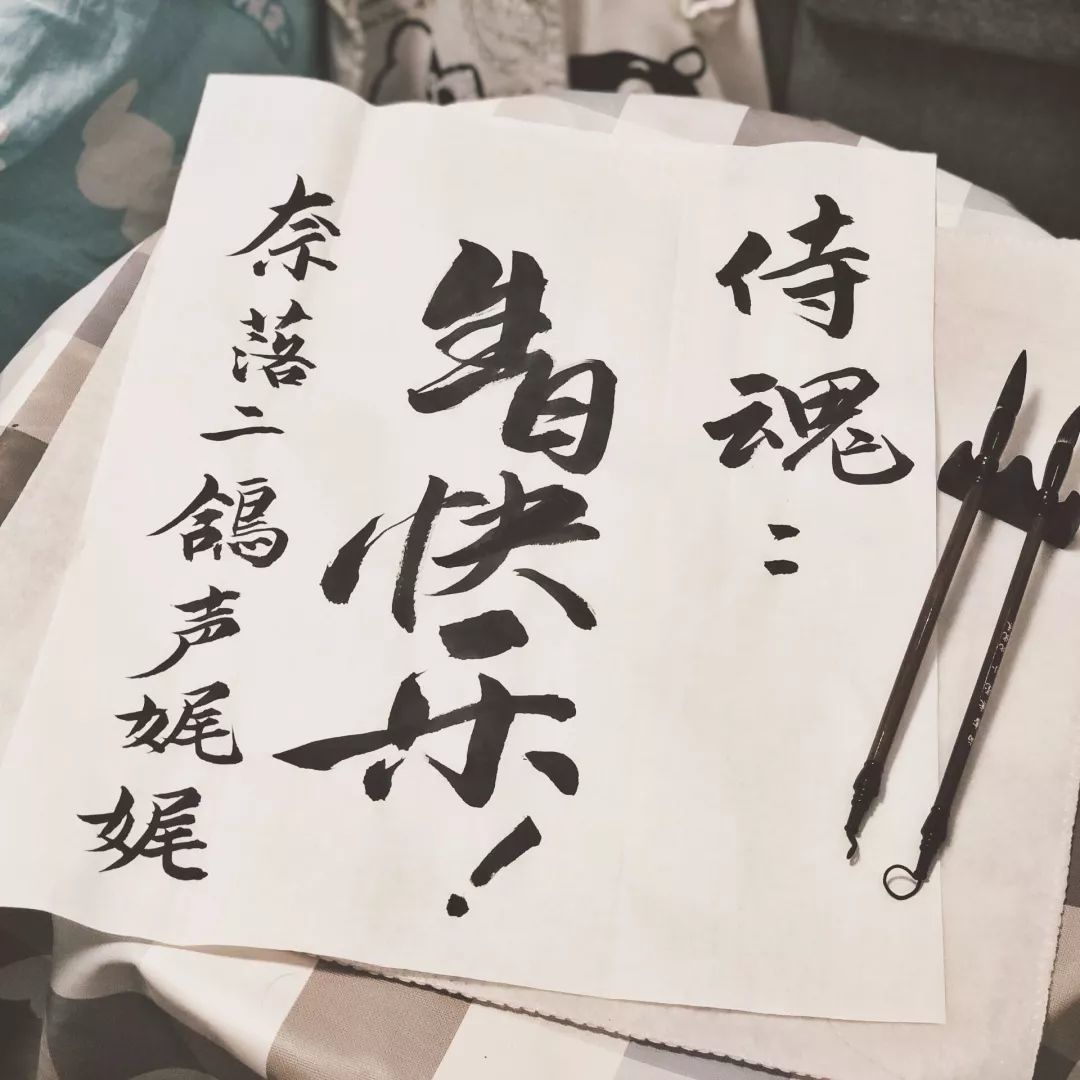 侍魂：
生日快乐！
奈落二鴿声娓娓